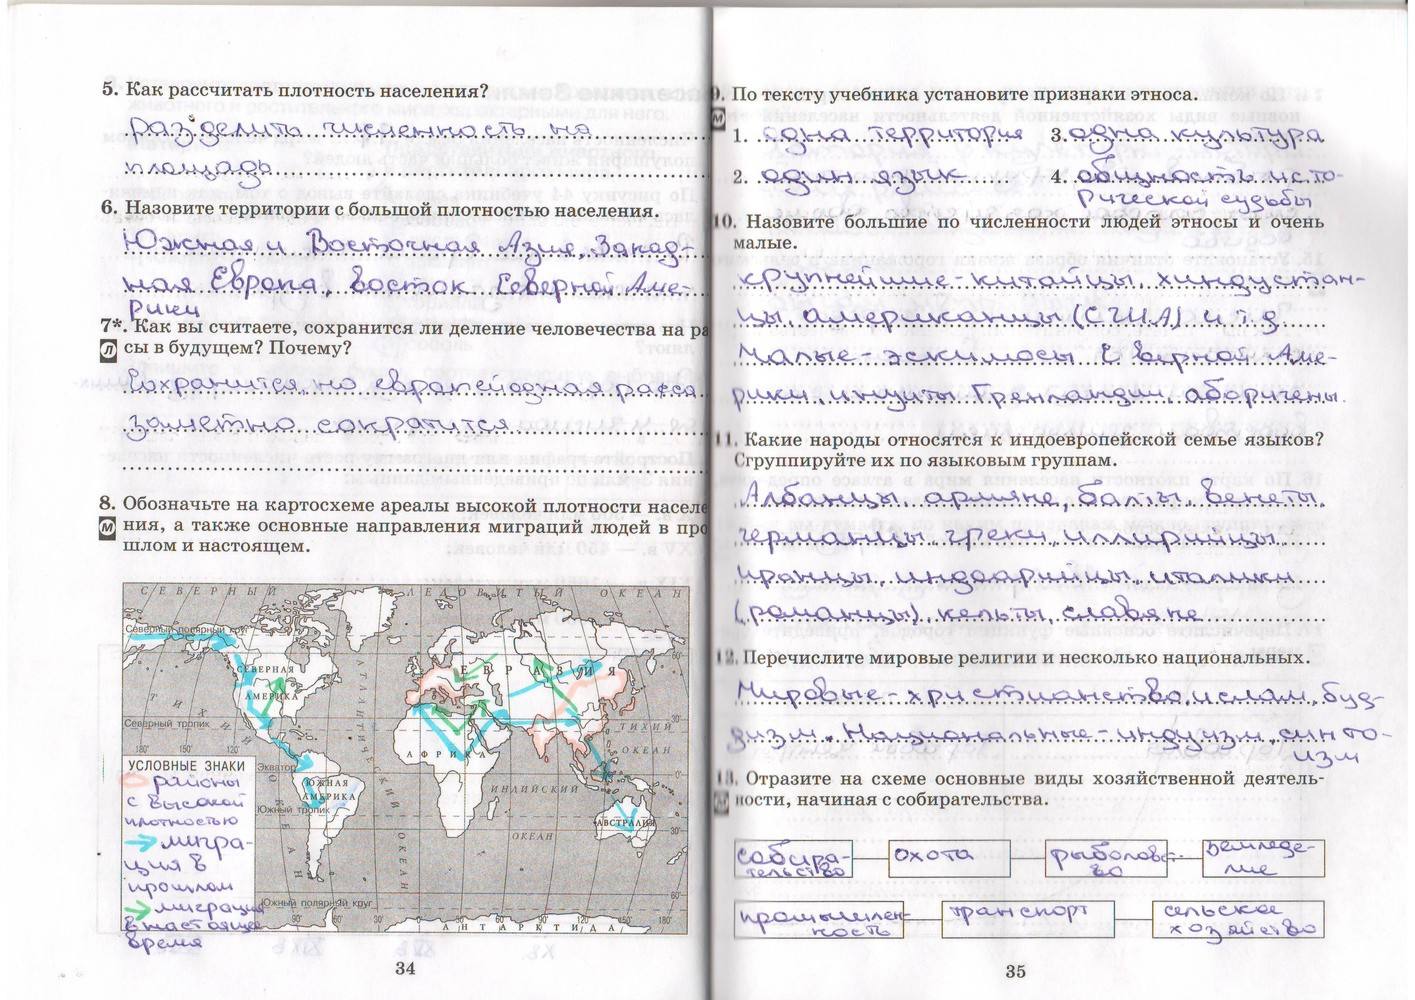 5. Как рассчитать плотность населения?
Разделить численность на
площадь
6. Назовите территории с большой плотностью населения.
Южная и Восточная Азия, Запад-
ная Европа, восток Северной Аме-
рики
7*. Как вы считаете, сохранится ли деление человечества на ра
Л сы в будущем? Почему?
Сохранится, но европейодная расса
заметно сократится
8. Обозначьте на картосхеме ареалы высокой плотности населе
М ния, а также основные направления миграций людей в про
шлом и настоящем.
СЕВЕРНЫЙ ЛЕДОВИТЫЙ ОКЕАН
Северный полярный круг
СЕВЕРНАЯ
АМЕРИКА
ЕВРАЗИЯ
АТЛАНТИЧЕСКИЙ
ОКЕАН
ТИХИЙ
ОКЕАН
Северный тропик
180° 150° 120°
АФРИКА
ТИХИЙ
ОКЕАН
Экватор
ЮЖНАЯ
АМЕРИКА
ИНДИЙСКИЙ
ОКЕАН
АВСТРАЛИЯ
Южный тропик
Южный полярный круг
АНТАРКТИДА
УСЛОВНЫЕ ЗНАКИ
районы
с высокой
плотностью
мигра-
ция в
прошлом
миграция
в настоящее
время
34
9. По тексту учебника установите признаки этноса.
М 1. одна территория 3. одна культура
2. один язык 4. общность исто-
рической судьбы
10. Назовите большие по численности людей этносы и очень
малые.
крупнейшие - китайцы, хиндустан-
цы, американцы (США) и т.д
Малые - эскимосы Северной Аме-
рики, инуиты Гренландии, аборигены.
11. Какие народы относятся к индоевропейской семье языков?
Сгруппируйте их по языковым группам.
Албанцы, армяне, балты, венеты,
германцы, греки, иллирийцы,
иранцы, индоарийцы, италики
(романцы), кельты, славяне
12. Перечислите мировые религии и несколько национальных.
Мировые - христианство, ислам, буд-
дизм. Национальные - индуизм, синто-
изм
13. Отразите на схеме основные виды хозяйственной деятель-
ности, начиная с собирательства.
собира-
тельство
охота
рыболовс-
во
земледе-
лие
промышлен-
ность
транспорт
сельское
хозяйство
35